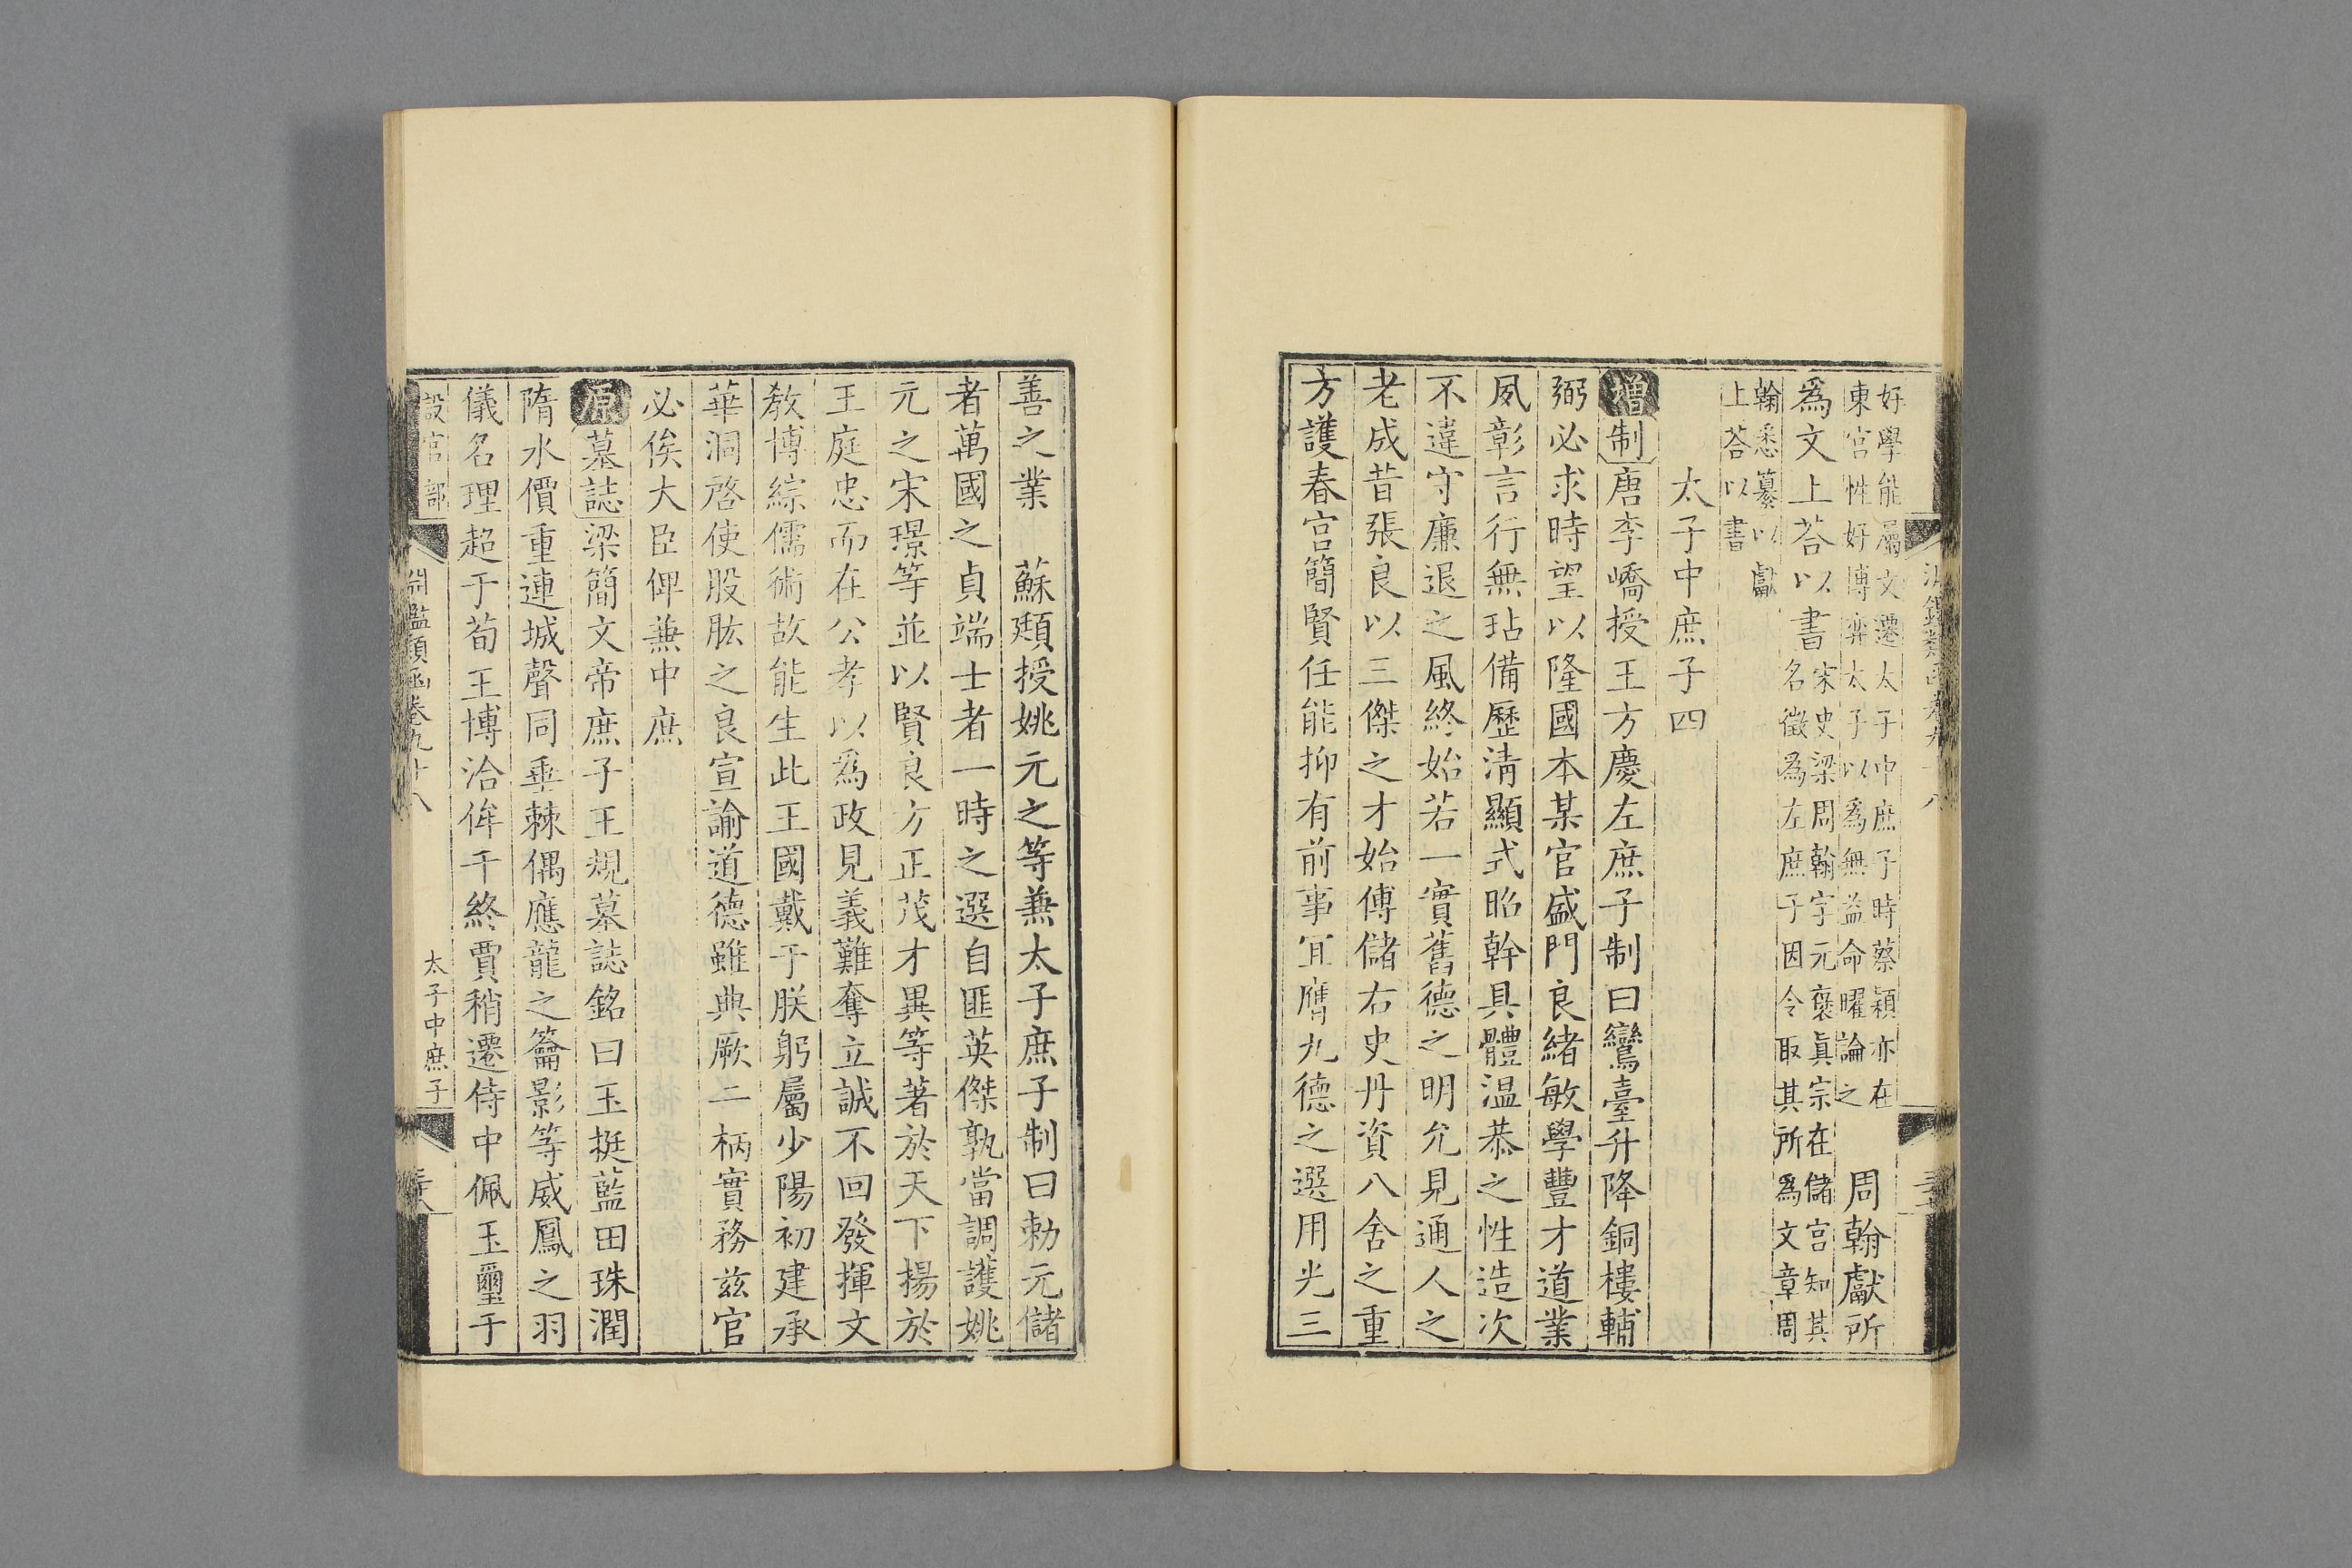 好學能屬文遷太子中庶子時蔡穎亦在
東宮性好博弈太子以爲無益命曜論之
周翰獻所
爲文上荅以書
宋史梁周翰字元襃眞宗在儲宮知其
名徵爲左庶子因令取其所爲文章周
翰悉纂以獻
上荅以書
太子中庶子四
增制唐李嶠授王方慶左庶子制曰鸞臺升降銅樓輔
弼必求時望以隆國本某官盛門良緒敏學豐才道業
夙彰言行無玷備歷淸顯式昭幹具體温恭之性造次
不違守廉退之風終始若一實舊德之明允見通人之
老成昔張良以三傑之才始傅儲右史丹資八舍之重
方護春宮簡賢任能抑有前事宜膺九德之選用光三
善之業　蘇頲授姚元之等兼太子庶子制曰勅元儲
者萬國之貞端士者一時之選自匪英傑孰當調護姚
元之宋璟等並以賢良方正茂才異等著於天下揚於
王庭忠而在公孝以爲政見義難奪立誠不回發揮文
敎博綜儒術故能生此王國戴于朕躬屬少陽初建承
華洞啓使股肱之良宣諭道德雖典厥二柄實務兹官
必俟大臣俾兼中庶
原墓誌梁簡文帝庶子王規墓誌銘曰玉挺藍田珠潤
隋水價重連城聲同垂棘偶應龍之籥影等威鳳之羽
儀名理超于荀王博洽侔于終賈稍遷侍中佩玉璽于
設官部
淵鑑類函卷九十八
太子中庶子